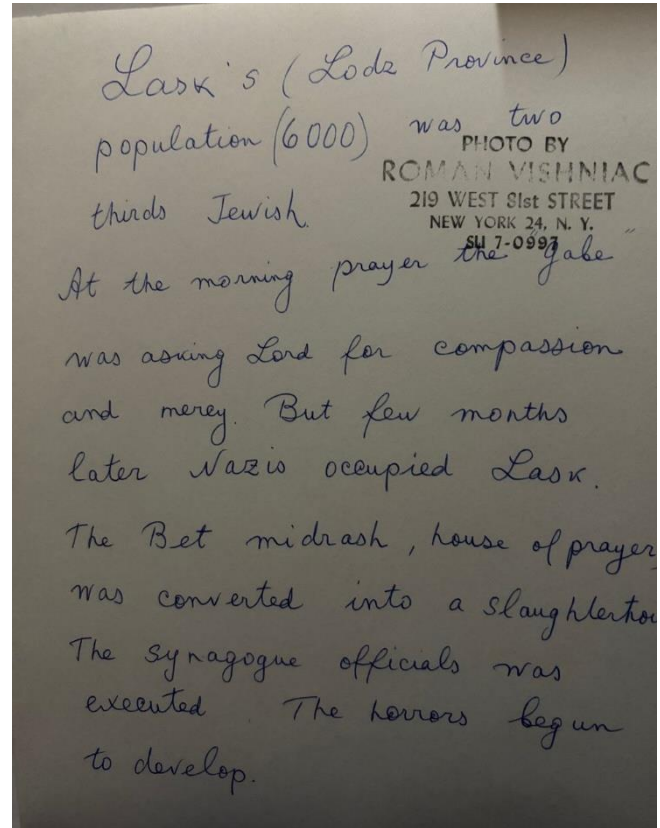 Lask's (Lodz Province)
population (6000) was two
PHOTO BY
ROMAN VISHNIAC
219 WEST 81st STREET
NEW YORK 24, N. Y.
SU 7-0993
thirds Jewish.
At the morning prayer the "gabe"
was asking Lord for compassion
and mercy. But few months
later Nazis occupied Lask.
The Bet midrash, house of prayer,
was converted into a slaughterhou
The synagogue officials was
executed The horrors begun
to develop.